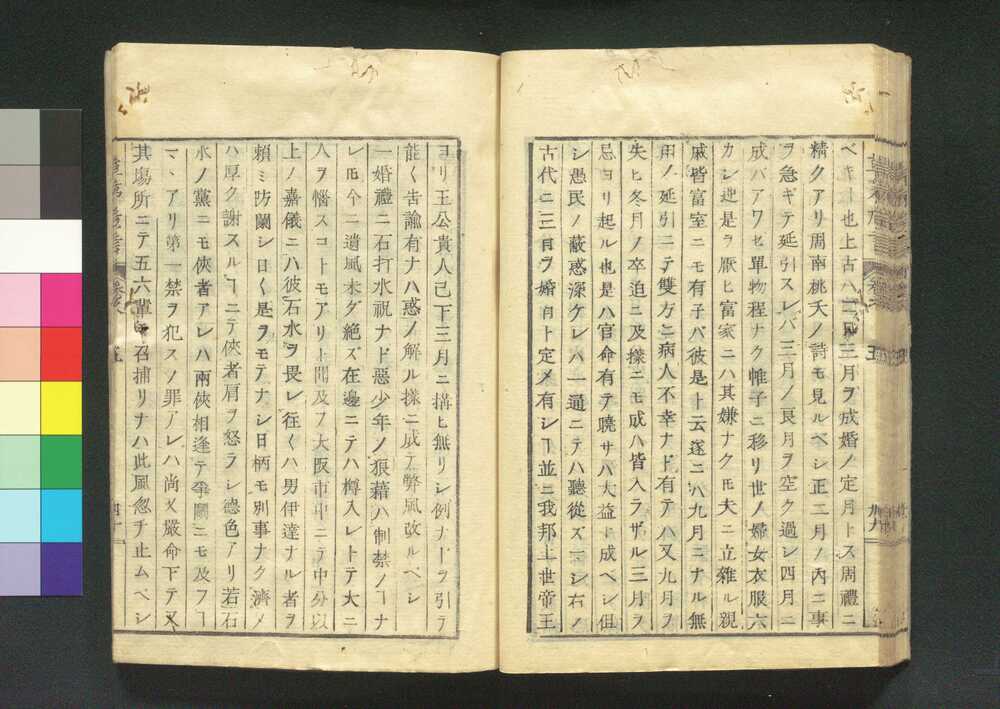 ベキ也上古ハ二三月ヲ成婚ノ定月トス周禮ニ
精クアリ周南桃夭ノ詩モ見ルベシ正二月ノ內ニ事
ヲ急ギテ延引スレバ三月ノ良月ヲ空ク過レ四月ニ
成バアワセ單物程ナク帷子ニ移リ世ノ婦女衣服六
カシ迚是ヲ厭ヒ富家ニハ其嫌ナクモ夫ニ立雜ル親
戚皆富室ニモ有子バ彼是ト云遂ニ八九月ニナル無
用ノ延引ニテ雙方ニ病人不幸ナド有テハ又九月ヲ
失ヒ冬月ノ卒迫ニ及樣ニモ成ハ皆入ラザル三月ヲ
忌ヨリ起ル也是ハ官命有テ曉サバ大益ト成ベシ但
シ愚民ノ蔽惑深ケレバ一通ニテハ聽從ズーシ右ノ
古代ニ三月ヲ婚月ト定メ有シヿ並ニ我邦上世帝王
ヨリ王公貴人已下三月ニ搆ヒ無リシ例ナドヲ引テ
能ク吿諭有ナハ惑ノ解ル樣ニ成テ弊風改ルベシ
一婚禮ニ石打水祝ナド惡少年ノ狼藉ハ制禁ノヿナ
レ𪜈今ニ遺風未ダ絶ズ在邊ニテハ樽入レトテ大ニ
人ヲ惱スコトモアリト聞及フ大阪市中ニテ中分以
上ノ嘉儀ニハ彼石水ヲ畏レ徃くハ男伊達ナル者ヲ
賴ミ防闌シ日く是ヲモテナシ日柄モ別事ナク濟メ
ハ厚ク謝スルヿニテ俠者肩ヲ怒ラシ德色アリ若石
水ノ黨ニモ俠者アレハ兩俠相逢テ爭鬭ニモ及フヿ
マヽアリ第一禁ヲ犯スノ罪アレハ尚又嚴命下テ又
其塲所ニテ五六輩モ召捕リナハ此風忽チ止ムベシ